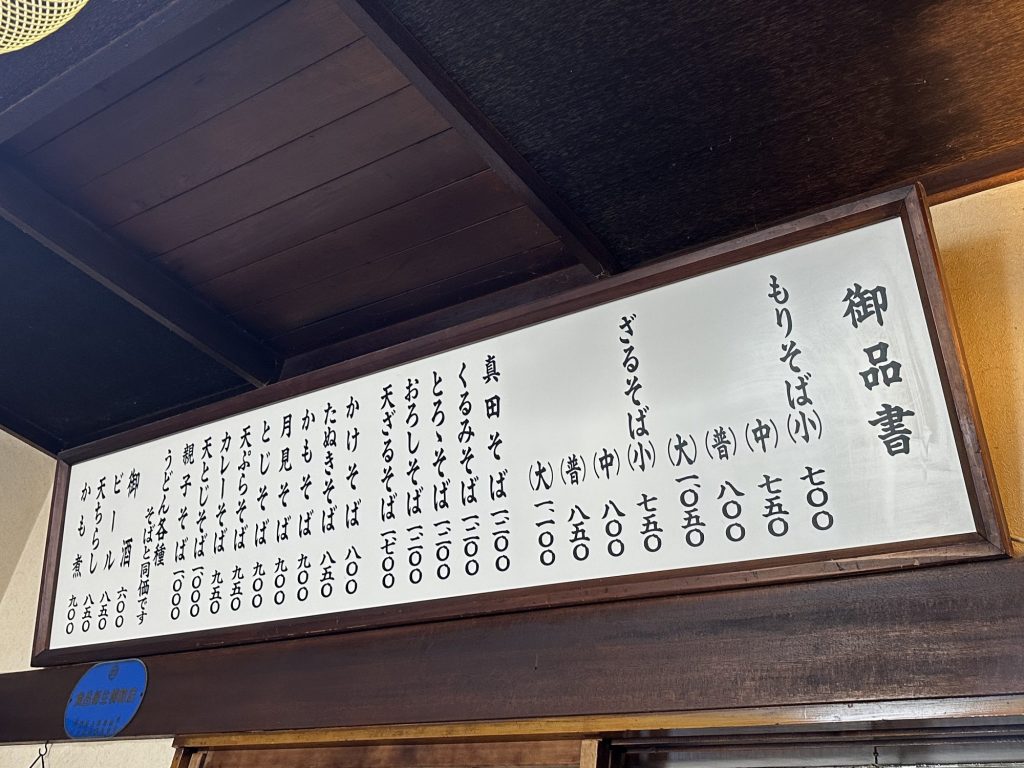 御品書
もりそば(小) 七〇〇
(中) 七五〇
(普) 八〇〇
(大) 一〇五〇
ざるそば(小) 七五〇
(中) 八〇〇
(普) 八五〇
(大) 一一〇〇
真田そば 一二〇〇
くるみそば 一二〇〇
とろゝそば 一二〇〇
おろしそば 一二〇〇
天ざるそば 一七〇〇
かけそば 八〇〇
たぬきそば 八五〇
かもそば 九〇〇
月見そば 九〇〇
とじそば 九〇〇
天ぷらそば 九五〇
カレーそば 九五〇
天とじそば 一〇〇〇
親子そば 一〇〇〇
うどん各種
そばと同価です
御酒 六〇〇
ビール 八五〇
天ちらし 八五〇
かも煮 九〇〇